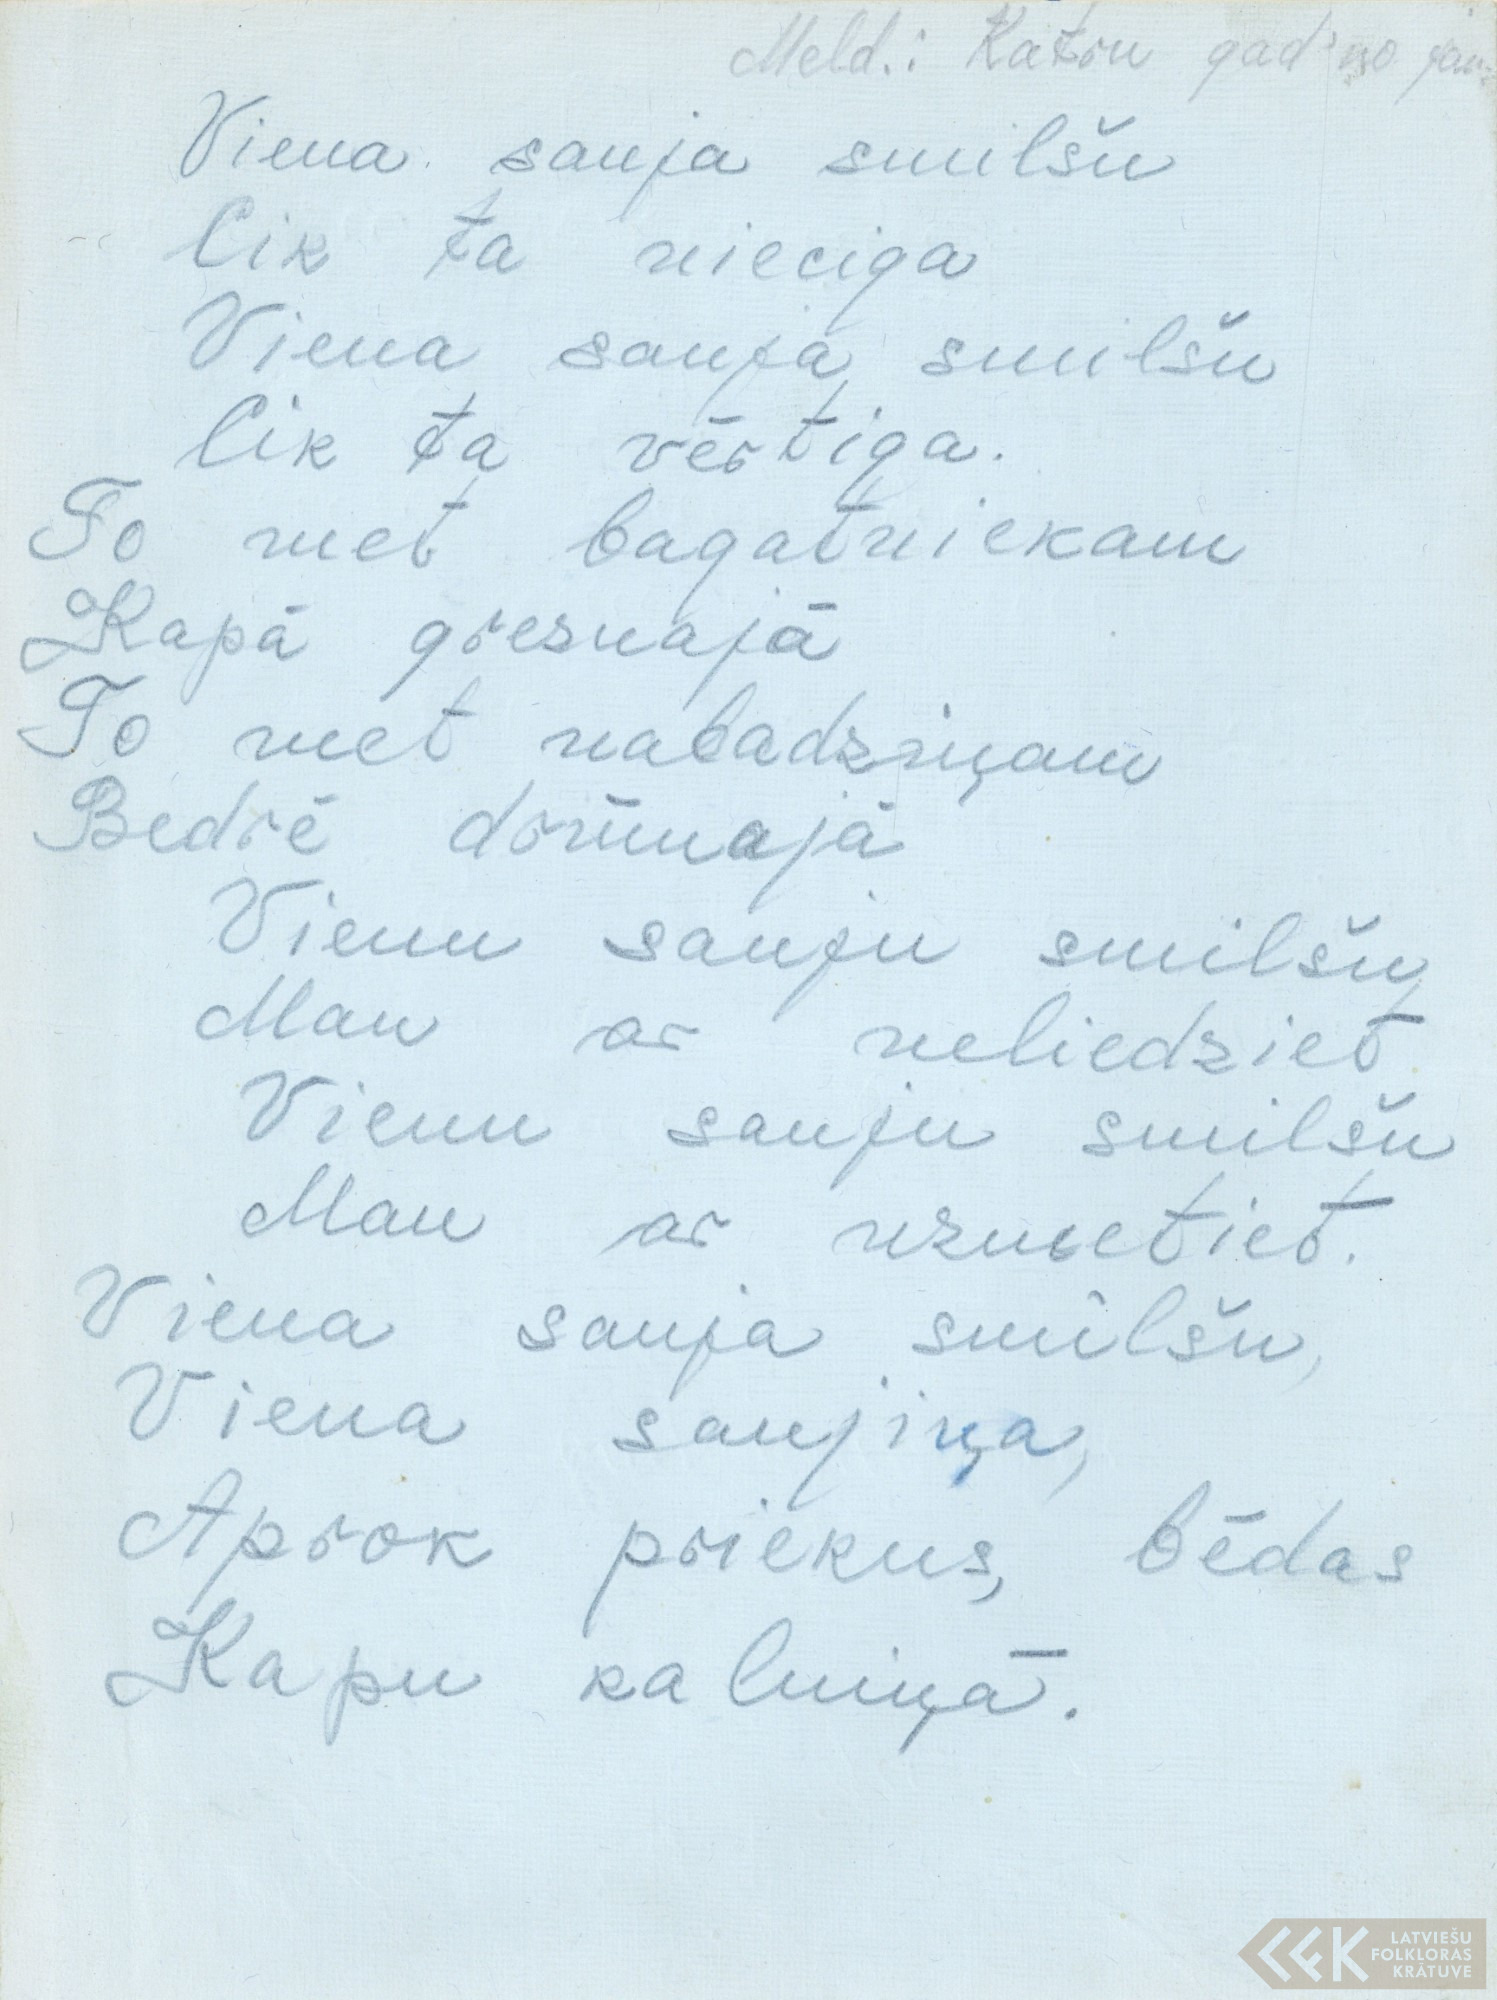 Meld.: Katru gad' no
Viena sauja smilšu
Cik ta nieciga
Viena sauja smilšu
Cik ta vērtiga.
To met bagatniekam
Kapā greznajā
To met nabadziņam
Bedrē drūmajā
Vienu sauju smilšu
Man ar neliedziet
Vienu sauju smilšu
Man ar uzmetiet.
Viena sauja smilšu,
Viena saujiņa,
Aprok priekus, bēdas
Kapu kalniņā.
LATVIEŠU
FOLKLORAS
KRĀTUVE